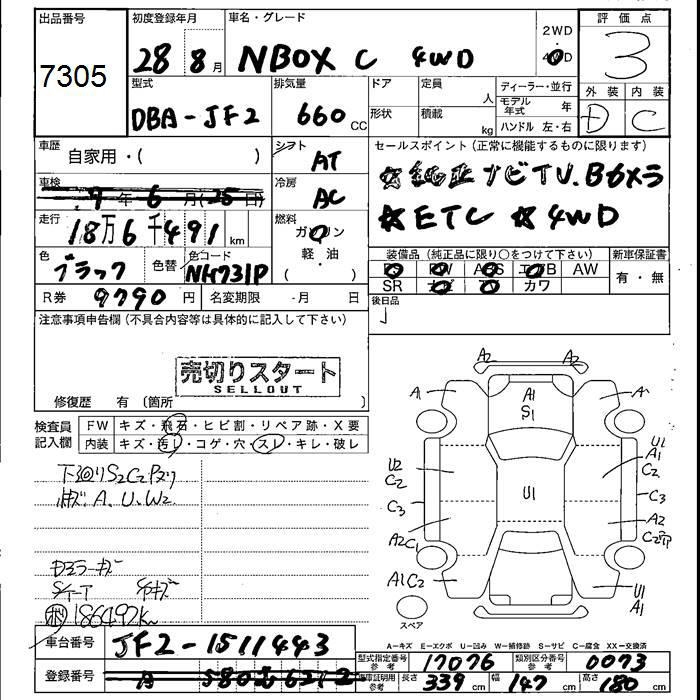 出品番号 初度登録年月 車名・グレード 2WD 評価点
7305 28 8月 NBOX C 4WD 4WD 3
型式 排気量 ドア 定員 人 ディーラー・並行 外装 内装
DBA-JF2 660cc 形状 積載 kg モデル年式 年 D C
ハンドル 左・右
車歴 自家用・( ) シフト AT セールスポイント(正常に機能するものに限ります)
車検 7年6月(25日) 冷房 AC ☆純正ナビTV.Bカメラ
走行 18万6千491km 燃料 ガソリン 軽・油 ☆ETC ☆4WD
色 ブラック 色替 色コード NH731P 装備品(純正品に限り○をつけて下さい) 新車保証書
PS PW ABS エアB AW 有・無
SR ナビ TV カワ
R券 9790円 名変期限 ・月 日 後日品
注意事項申告欄(不具合内容等は具体的に記入して下さい)
売切りスタート
SELLOUT
修復歴 有 〔箇所 〕
検査員記入欄 FW キズ・飛石・ヒビ割・リペア跡・X要
内装 キズ・汚レ・コゲ・穴・スレ・キレ・破レ
下回りS2C2Pズリ
A.U.W2
186492km
A2 A2
A1 A1 S1 A1
U2 C2 C3 A2C1 A1C2
U1
U1 A1 C2 C3 A2 C2
U1 A1
スペア
A-キズ E-エクボ U-凹み W-補修跡 S-サビ C-腐食 XX-交換済
車台番号 JF2-1511443
型式指定番号 参考 17076 類別区分番号 参考 0073
登録番号
車庫証明用 参考 長さ 339cm 幅 147cm 高さ 180cm